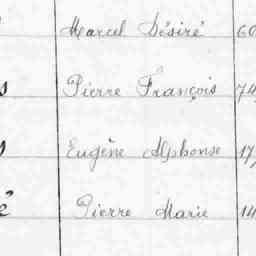 Marcel Désiré 60
s Pierre François 74
s Eugène Alphonse 17
é Pierre Marie 14